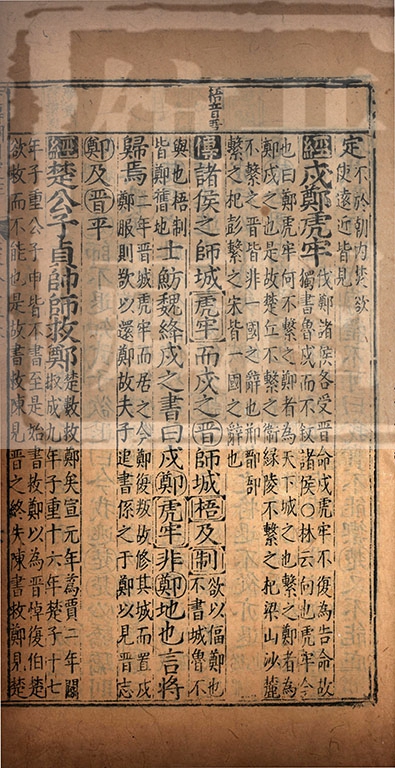 梧音吾
定
使遠近皆見
經戍鄭虎牢
伐鄭諸侯各受晉命戍虎牢不復為告命故
獨書魯戍而不敘諸侯〇林云向也虎牢今
也曰鄭虎牢何不繫之鄭者為天下城之也繫之鄭者為
鄭戍之也是故楚丘不繫之衛緣陵不繫之杞梁山沙麓
不繫之晉皆非一國之辭也邢鄑郚
繫之杞彭繫之宋皆一國之辭也
傳諸侯之師城虎牢而戍之晉師城梧及制
欲以偪鄭也
不書城魯不
與也梧制
皆鄭舊地
士魴魏絳戍之書曰戍鄭虎牢非鄭地也言將
歸焉
二年晉城虎牢而居之今鄭復叛故修其城而置戍
鄭服則欲以還鄭故夫子追書係之于鄭以見晉志
鄭及晉平
經楚公子貞帥師救鄭
楚數救鄭矣宣元年蒍賈二年鬬
椒成九年子重十六年楚子十七
年子重公子申皆不書至是始書救鄭以為晉悼復伯楚
欲救而不能也是故書救陳見晉之終失陳書救鄭見楚